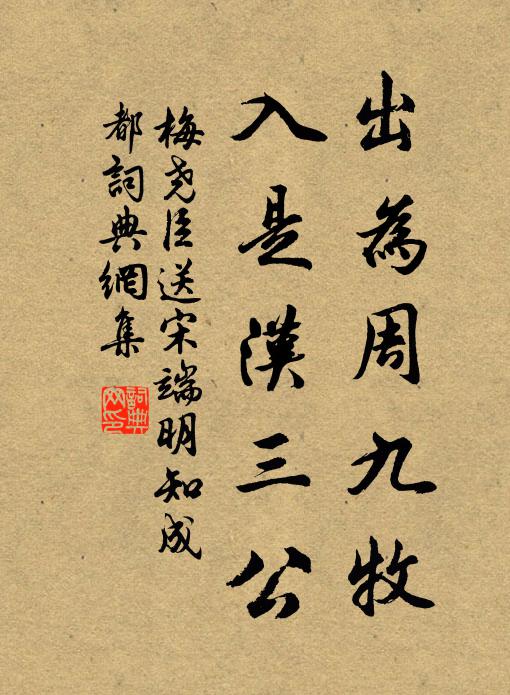 出為周九牧
入是漢三公
梅堯臣送宋端明知成
都詞典網集
詞典網印